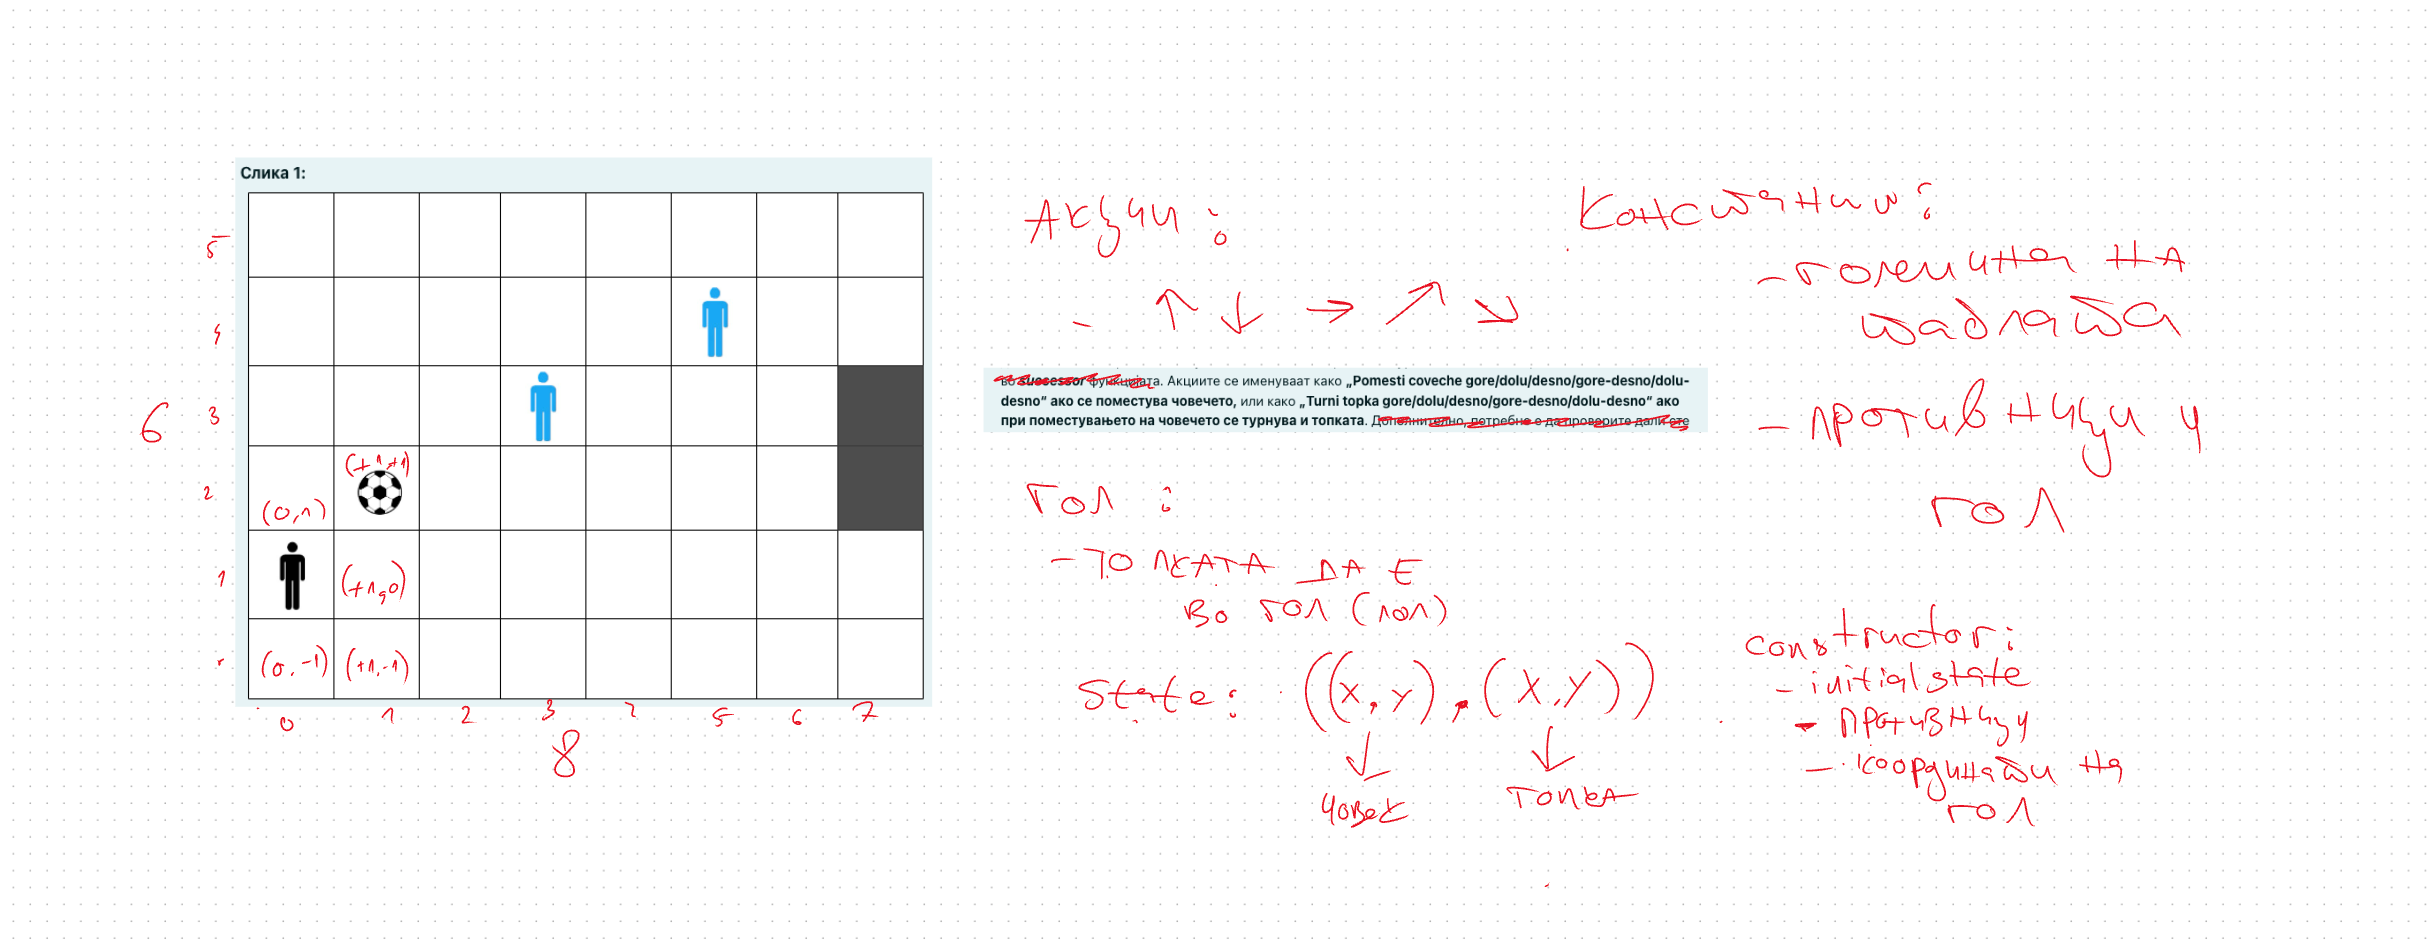 Слика 1:
5
4
3
6
2
1
(+1,+1)
(0,1)
(+1,0)
(0,-1) (+1,-1)
0 1 2 3 5 6 7
8
Акции:
-
во successor функцијата. Акциите се именуваат како „Pomesti coveche gore/dolu/desno/gore-desno/dolu-
desno“ ако се поместува човечето, или како „Turni topka gore/dolu/desno/gore-desno/dolu-desno“ ако
при поместувањето на човечето се турнува и топката. Дополнително, потребно е да проверите дали сте
Гол :
- ТОПКАТА ДА Е
ВО ГОЛ (лол)
State: ((x,y),(x,y))
човек
ТОПКА
Константи:
- големина на
таблата
- противници и
гол
constructor:
- initial state
- противници
- координати на
гол